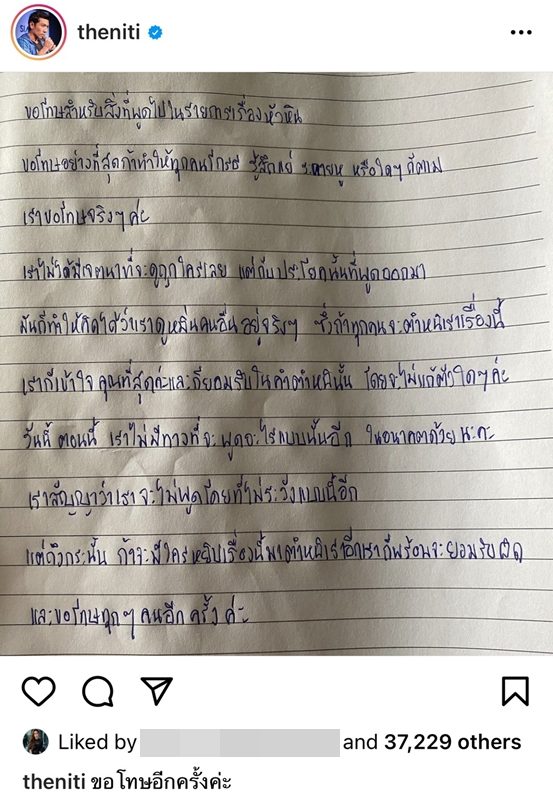 theniti
ขอโทษสำหรับสิ่งที่พูดไปในรายการเรื่องหัวหิน
ขอโทษอย่างที่สุดถ้าทำให้ทุกคนโกรธ รู้สึกแย่ ระคายหู หรือใดๆก็ตาม
เราขอโทษจริงๆค่ะ
เราไม่ได้มีเจตนาที่จะดูถูกใครเลย แต่กับประโยคนั้นที่พูดออกมา
มันก็ทำให้คิดได้ว่าเราดูหมิ่นคนอื่นอยู่จริงๆ ซึ่งถ้าทุกคนจะตำหนิเราเรื่องนี้
เราก็เข้าใจ คุณที่สุดค่ะและก็ยอมรับในคำตำหนินั้น โดยจะไม่แก้ตัวใดๆค่ะ
วันนี้ ตอนนี้ เราไม่มีทางที่จะ พูดอะไรแบบนั้นอีก ในอนาคตด้วย นะคะ
เราสัญญาว่าเราจะไม่พูดโดยที่ไม่ระวังแบบนี้อีก
แต่ถึงกระนั้น ถ้าจะมีใครหยิบเรื่องนี้มาตำหนิเราอีกเราก็พร้อมจะยอมรับผิด
และขอโทษทุกๆ คนอีก ครั้ง ค่ะ
Liked by and 37,229 others
theniti ขอโทษอีกครั้งค่ะ